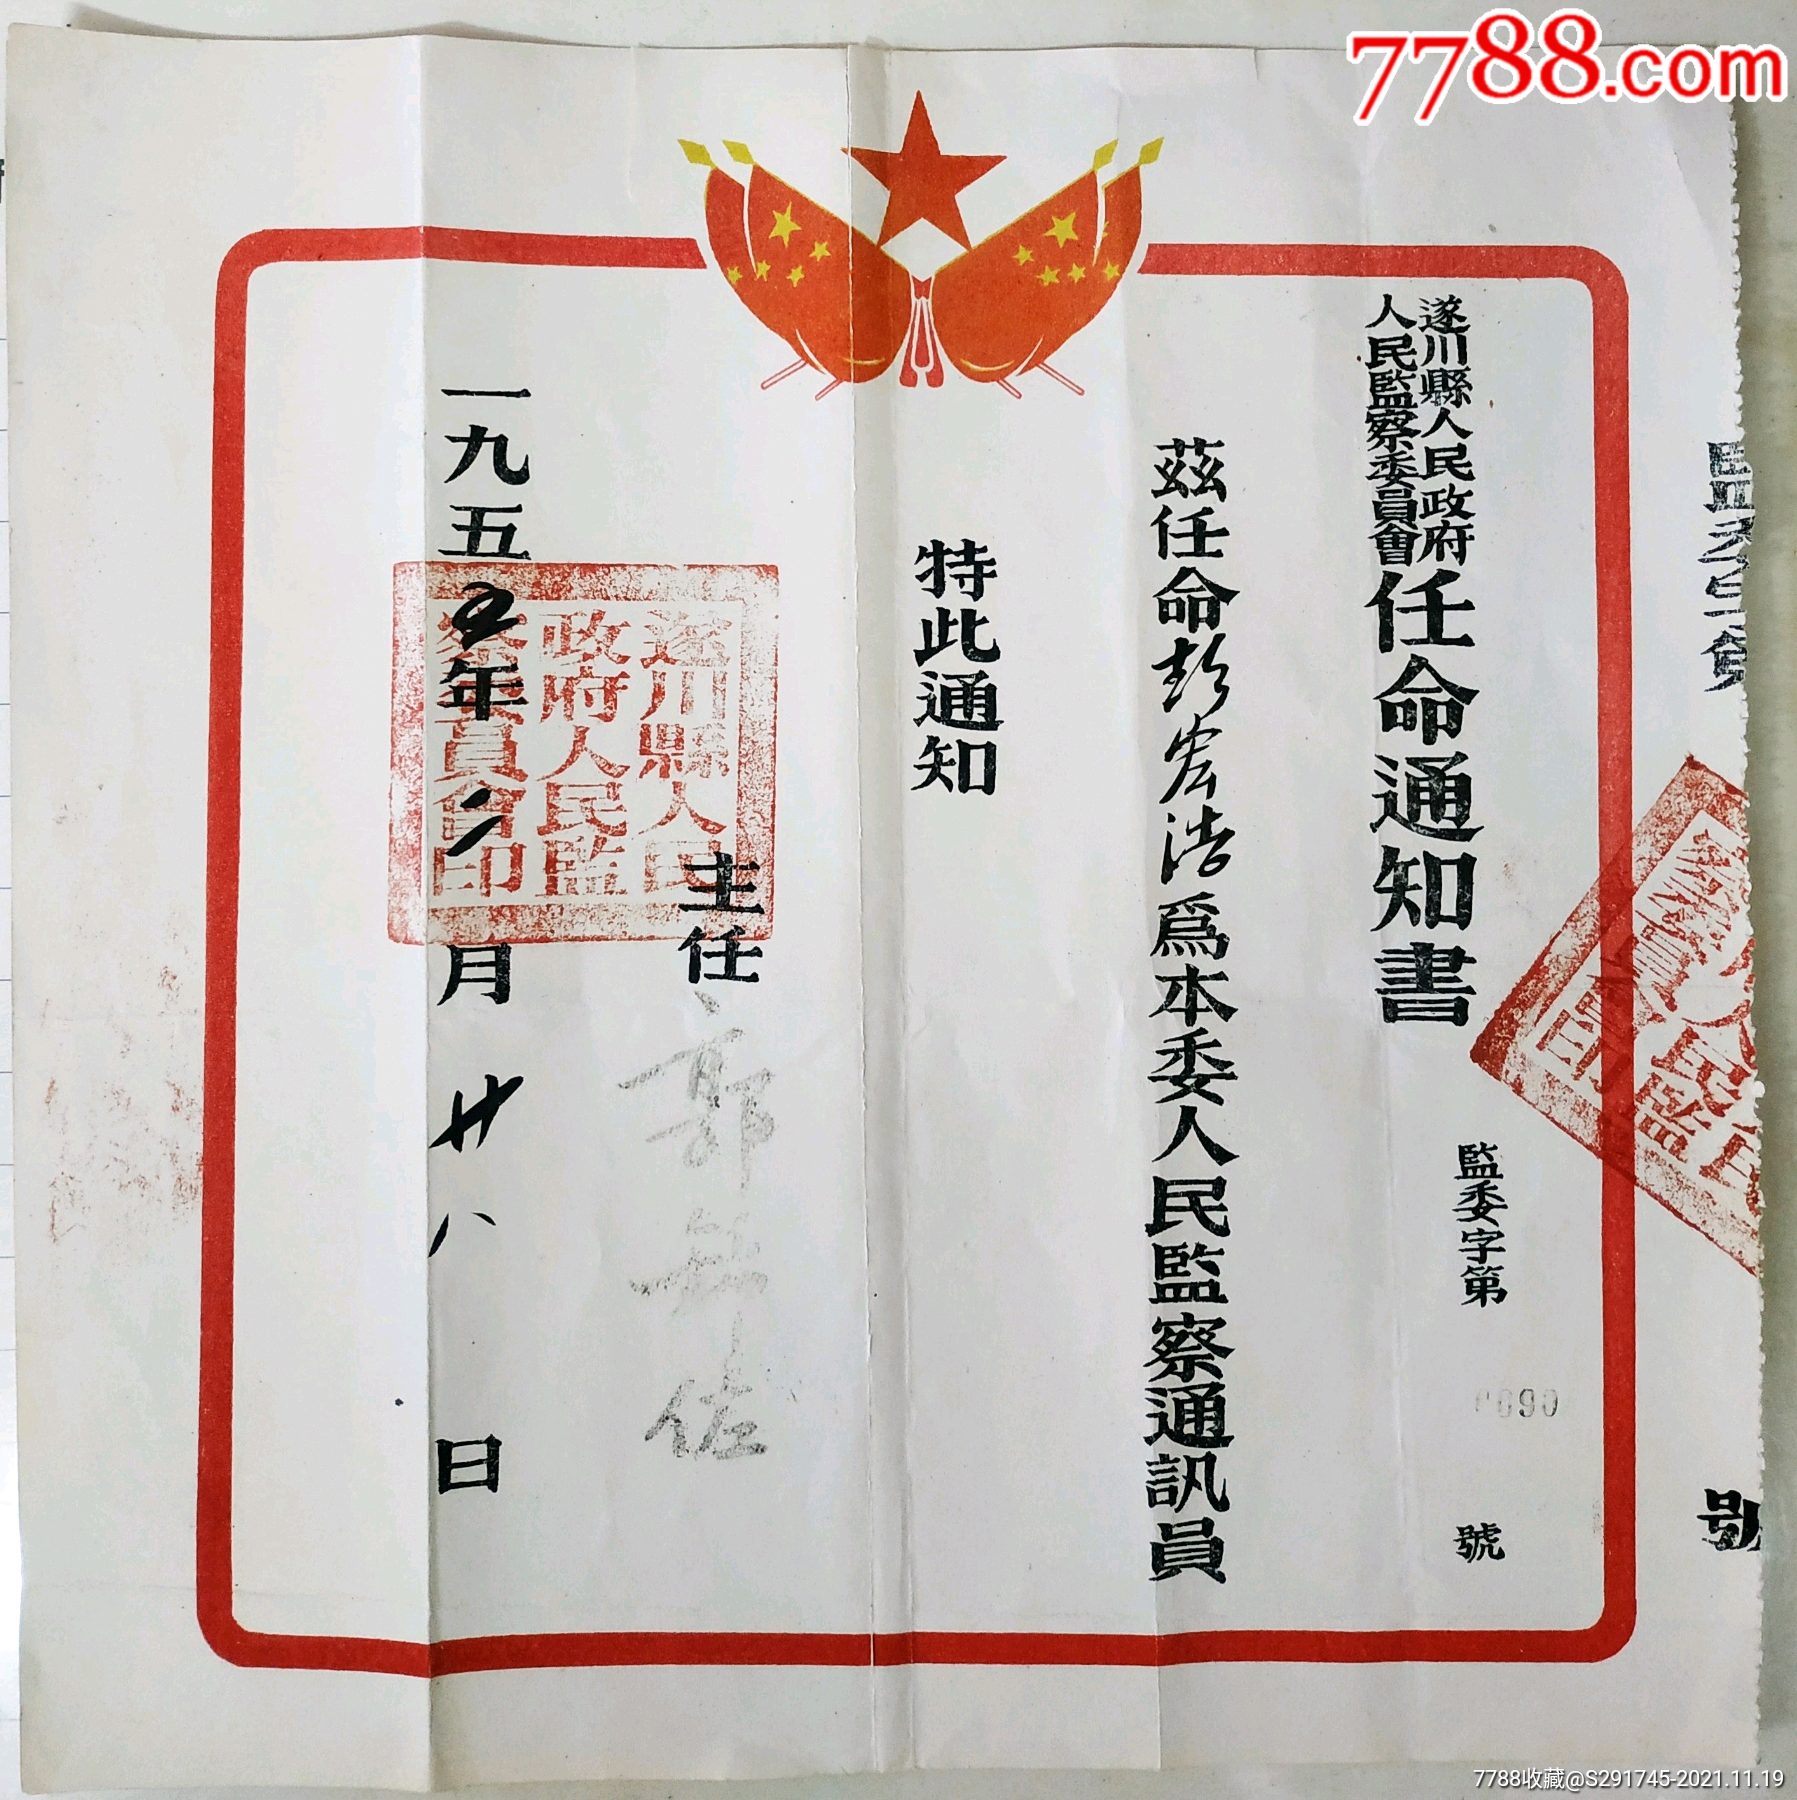 7788.com
遂川縣人民政府
人民監察委員會
任命通知書
監委字第
號
茲任命彭宏浩爲本委人民監察通訊員
特此通知
主任
一九五五年二月廿八日
遂川縣人民
政府人民監
察委員會印
監委字第
號
7788收藏@S291745-2021.11.19